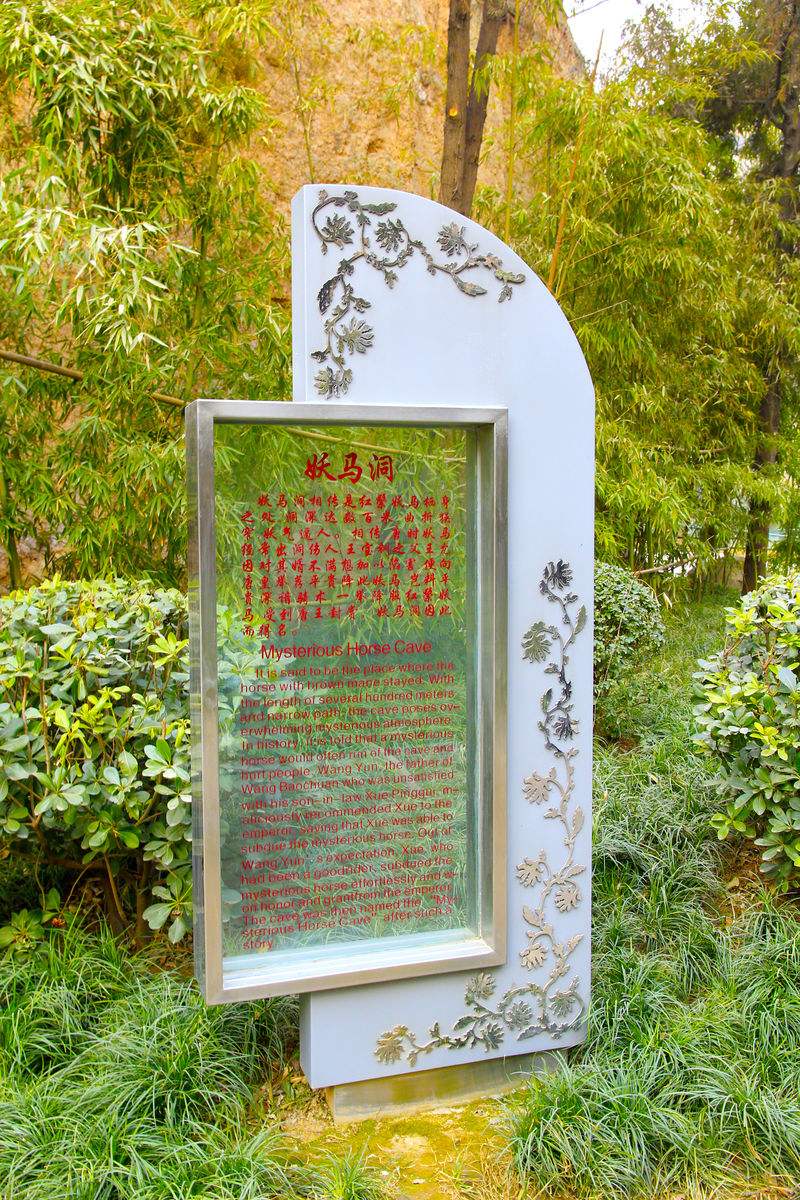 妖马洞
妖马洞相传是红鬃妖马栖身
之处,洞深达数百米,曲折狭
窄,妖气逼人。相传唐时妖马
经常出洞伤人,王宝钏之父王允
因对其婿不满想加以陷害,便向
唐皇举荐平贵降此妖马,岂料平
贵深谙骑术,一举降服红鬃妖
马,受到唐王封赏,妖马洞因此
而得名。
Mysterious Horse Cave
It is said to be the place where the
horse with brown mane stayed. With
the length of several hundred meters
and narrow path, the cave poses ov-
erwhelming mysterious atmosphere.
In history, it is told that a mysterious
horse would often run of the cave and
hurt people. Wang Yun, the father of
Wang Baochuan who was unsatisfied
with his son- in- law Xue Pinggui, m-
aliciously recommended Xue to the
emperor, saying that Xue was able to
subdue the mysterious horse. Out of
Wang Yun' s expectation, Xue, who
had been a good rider, subdued the
mysterious horse effortlessly and w-
on honor and grant from the emperor.
The cave was then named the "My-
sterious Horse Cave" after such a
story.